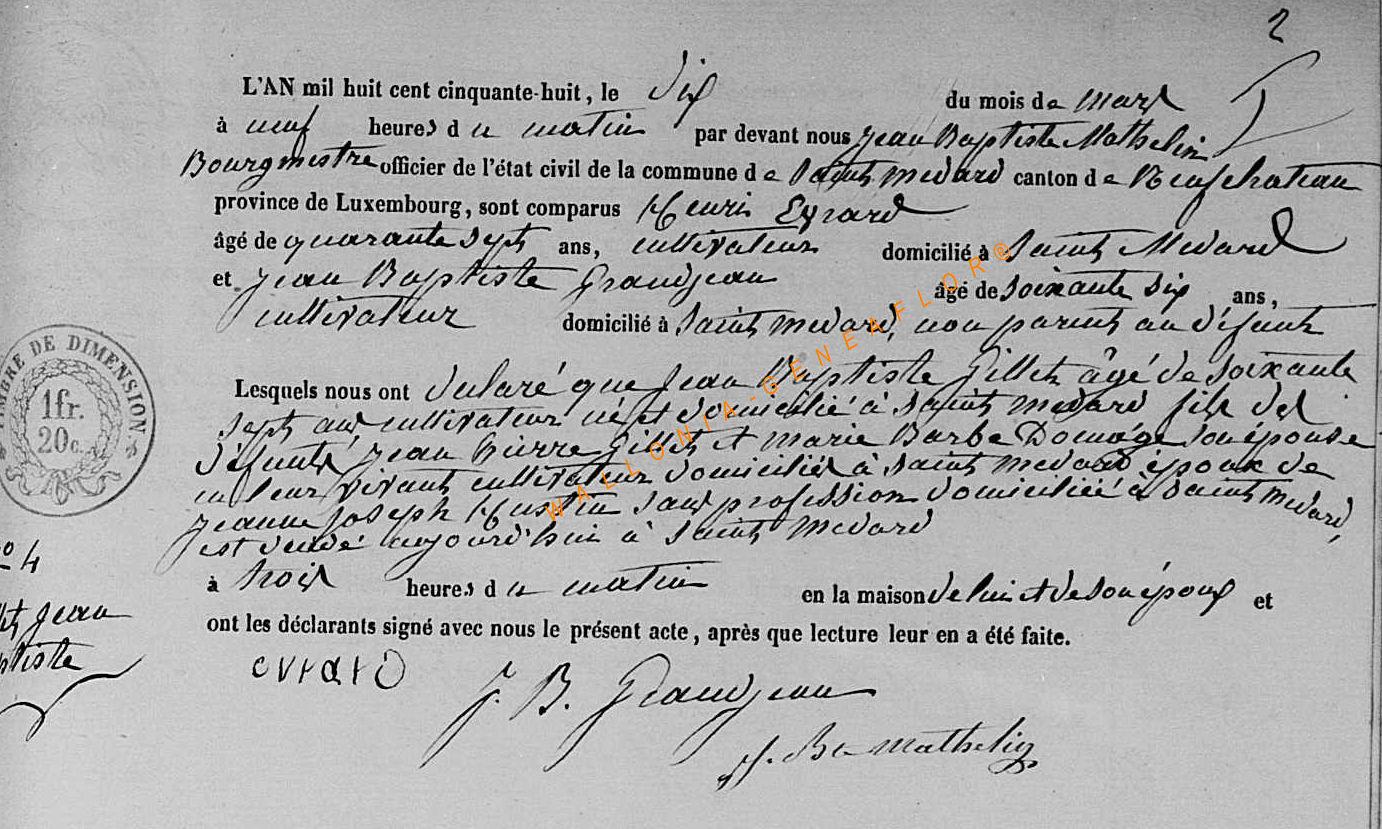 2
L'AN mil huit cent cinquante-huit, le dix du mois de mars
à neuf heures du matin par devant nous Jean Baptiste Mathelin
Bourgmestre officier de l'état civil de la commune de Saint Médard canton de Neufchateau
province de Luxembourg, sont comparus Henri Evrard
âgé de quarante sept ans, cultivateur domicilié à Saint Médard
et Jean Baptiste Grandjean âgé de soixante six ans,
cultivateur domicilié à Saint Médard, non parents au défunt
Lesquels nous ont déclaré que Jean Baptiste Gillet âgé de soixante
sept ans cultivateur né et domicilié à Saint Médard fils des
défunts Jean Pierre Gillet et Marie Barbe son épouse
en leur vivant cultivateur domiciliés à Saint Médard époux de
Jeanne Joseph Hustin sans profession domiciliée à Saint Médard,
est décédé aujourd'hui à Saint Médard
à trois heures du matin en la maison de lui et de son épouse et
ont les déclarants signé avec nous le présent acte, après que lecture leur en a été faite.
evrard
J. B. Grandjean
J. Bte Mathelin
TIMBRE DE DIMENSION
1 fr.
20 c.
No 4
Jean
WALLONIA-GENEAFLOR©